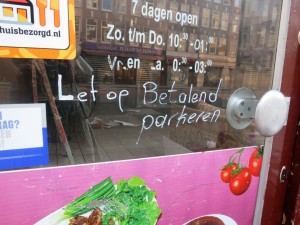 huisbezorgd.nl
7 dagen open
Zo. t/m Do. 10:30 -01:00
Vr. en .a. 0:30 - 03:00
Let op Betalend
parkeren
AG?